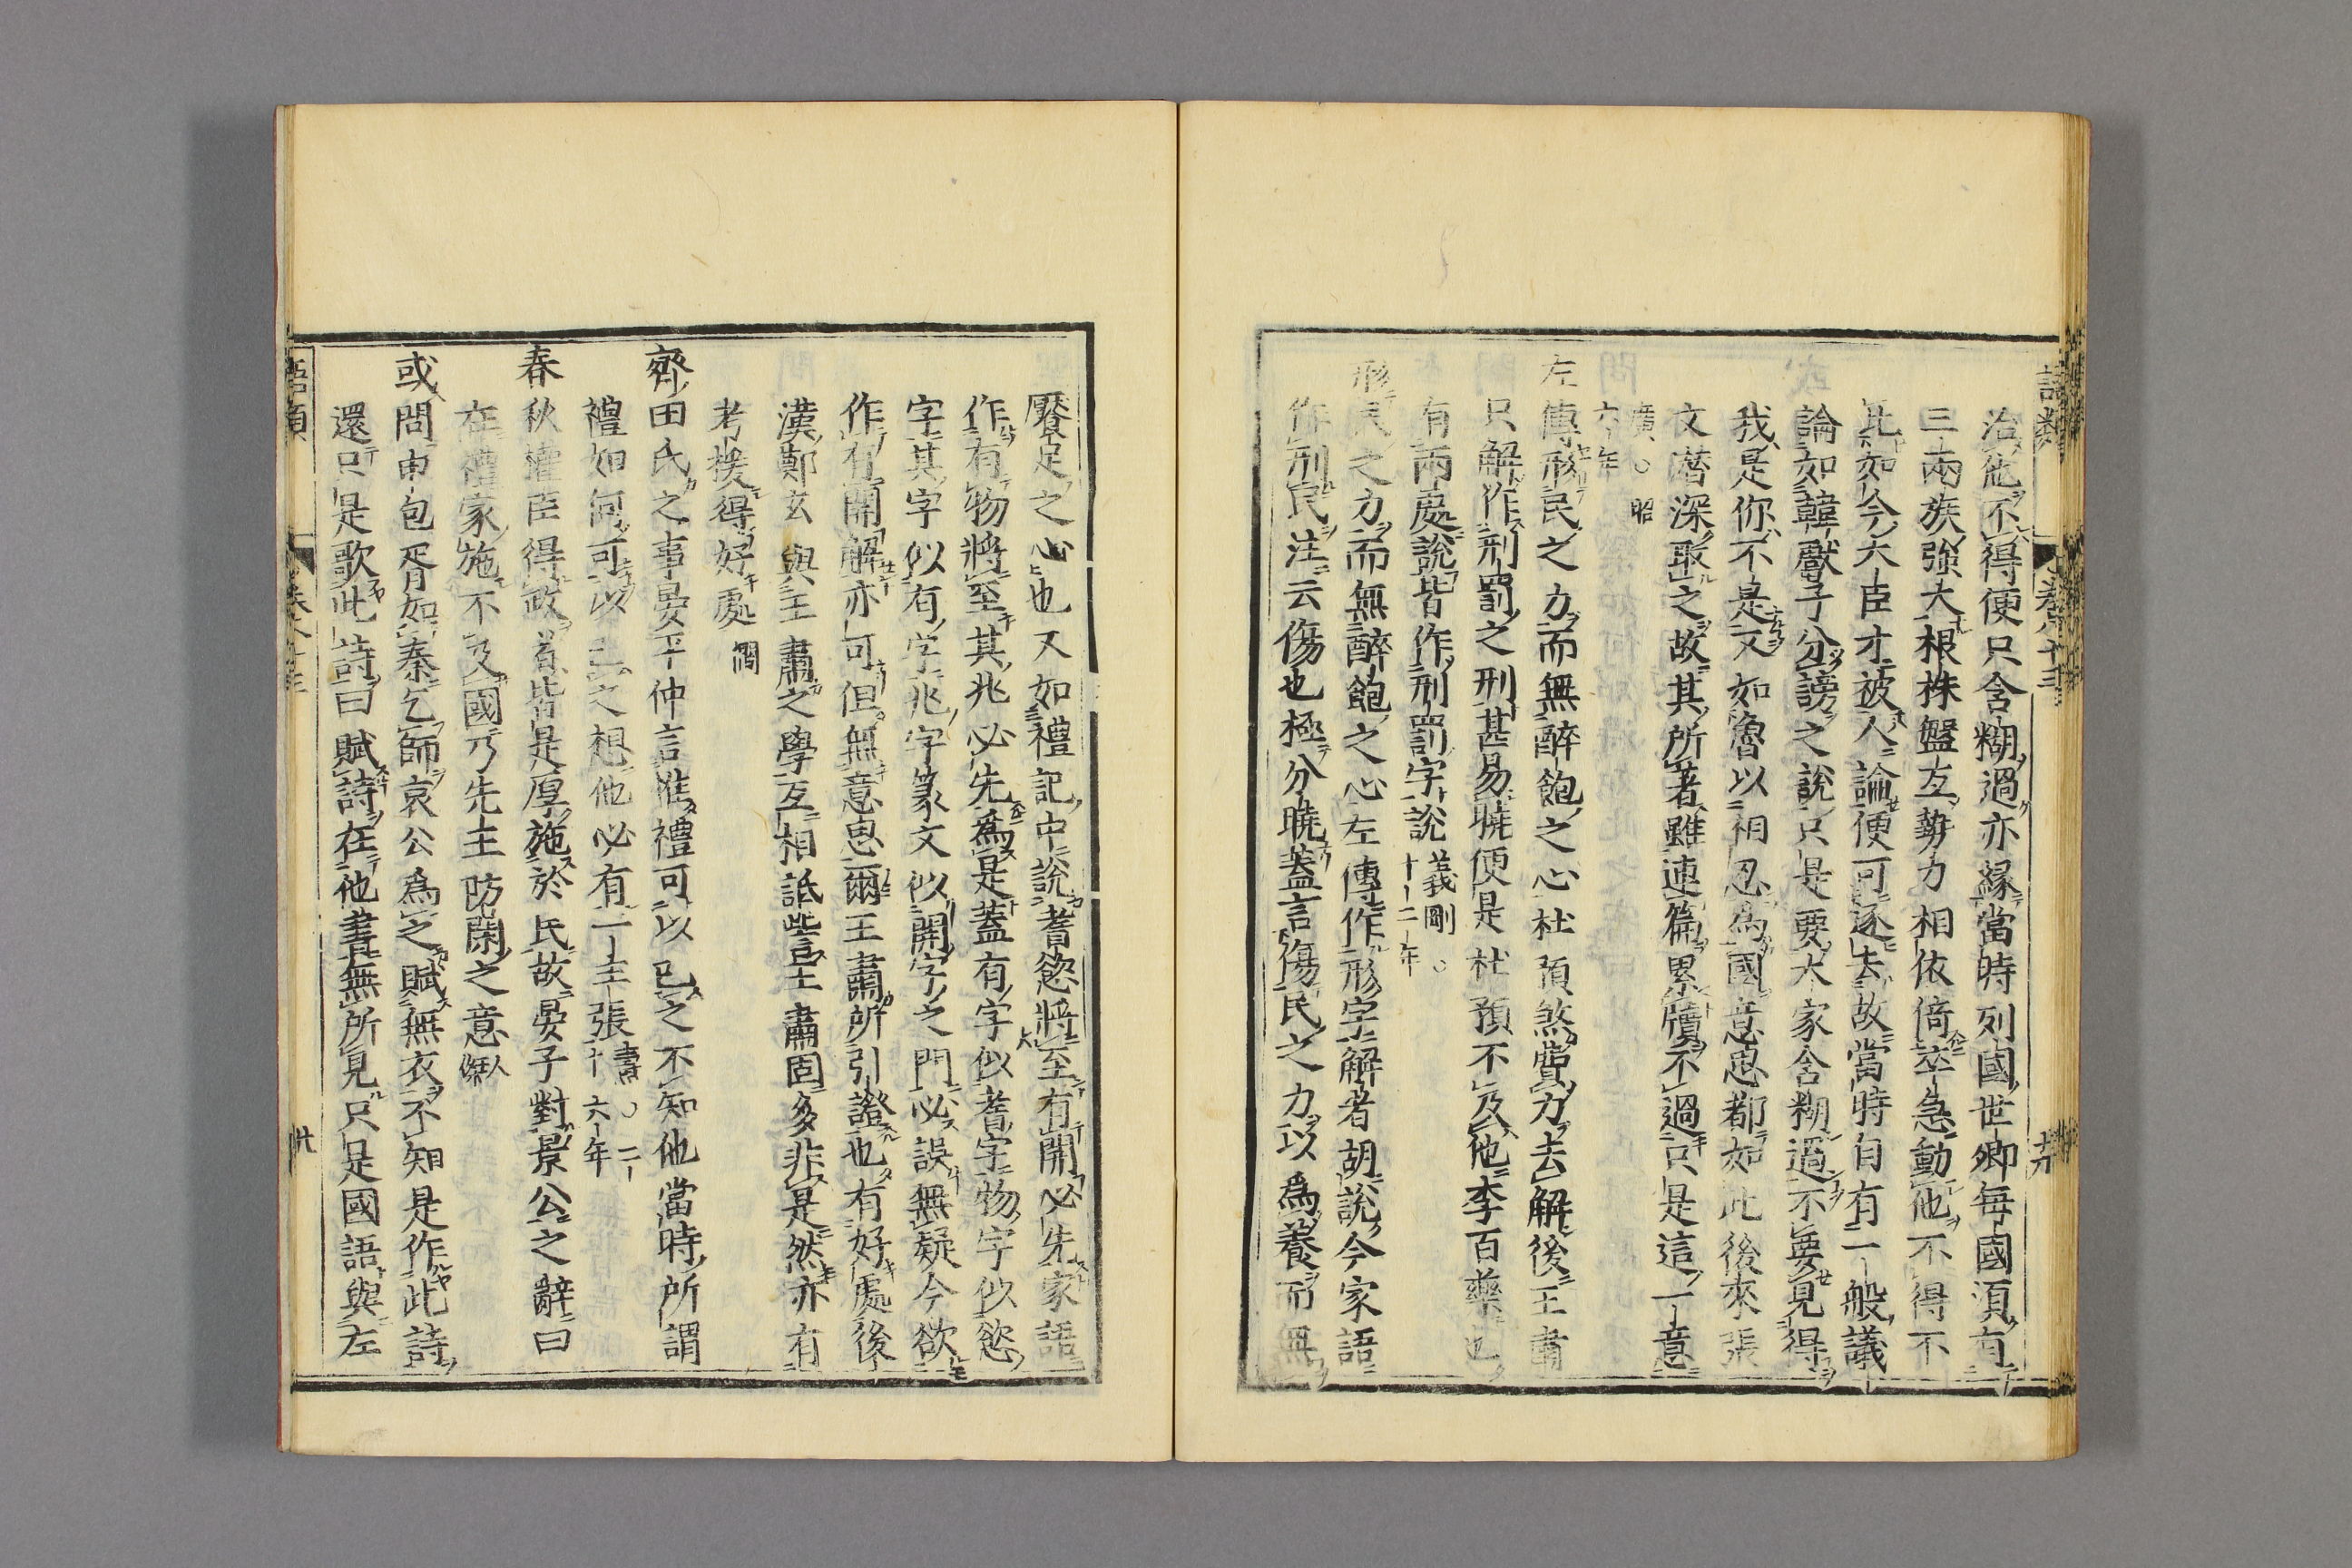 語類
卷八十三
治他不得便只含糊過亦縁當時列國世卿毎國須有
三兩族強大根株盤互勢力相依倚卒急動他不得不
比如今大臣才被人論便可逐去故當時自有一般議
論如韓獻子分謗之說只是要大家含糊過不要見得
我是你不是又如魯以相忍為國意思都如此後來張
文潛深取之故其所著雖連篇累牘不過只是這一意
廣○昭
六年
左傳形民之力而無醉飽之心杜預煞費力去解後王肅
只解作刑罰之刑甚易曉便是杜預不及他李百藥也
有兩處說皆作刑罰字說義剛○
十二年
形民之力而無醉飽之心左傳作形字解者胡說今家語
作刑民注云傷也極分曉蓋言傷民之力以為養而無
饜足之心也又如禮記中說耆慾將至有開必先家語
作有物將至其兆必先為是蓋有字似耆字物字似慾
字其字似有字兆字篆文似開字之門必誤無疑今欲
作有開解亦可但無意思爾王肅所引證也有好處後
漢鄭玄與王肅之學互相詆訾王肅固多非是然亦有
考援得好處僩
齊田氏之事晏平仲言惟禮可以已之不知他當時所謂
禮如何可以已之想他必有一主張燾○二
十六年
春秋權臣得政者皆是厚施於民故晏子對景公之辭曰
在禮家施不及國乃先王防閑之意人傑
或問申包胥如秦乞師哀公為之賦無衣不知是作此詩
還只是歌此詩曰賦詩在他書無所見只是國語與左
語類
卷八十三
廿